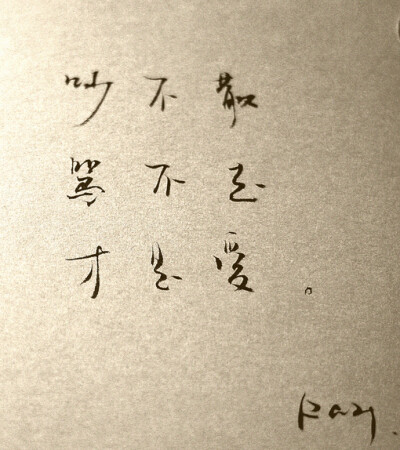 吵不散
骂不走
才是爱。